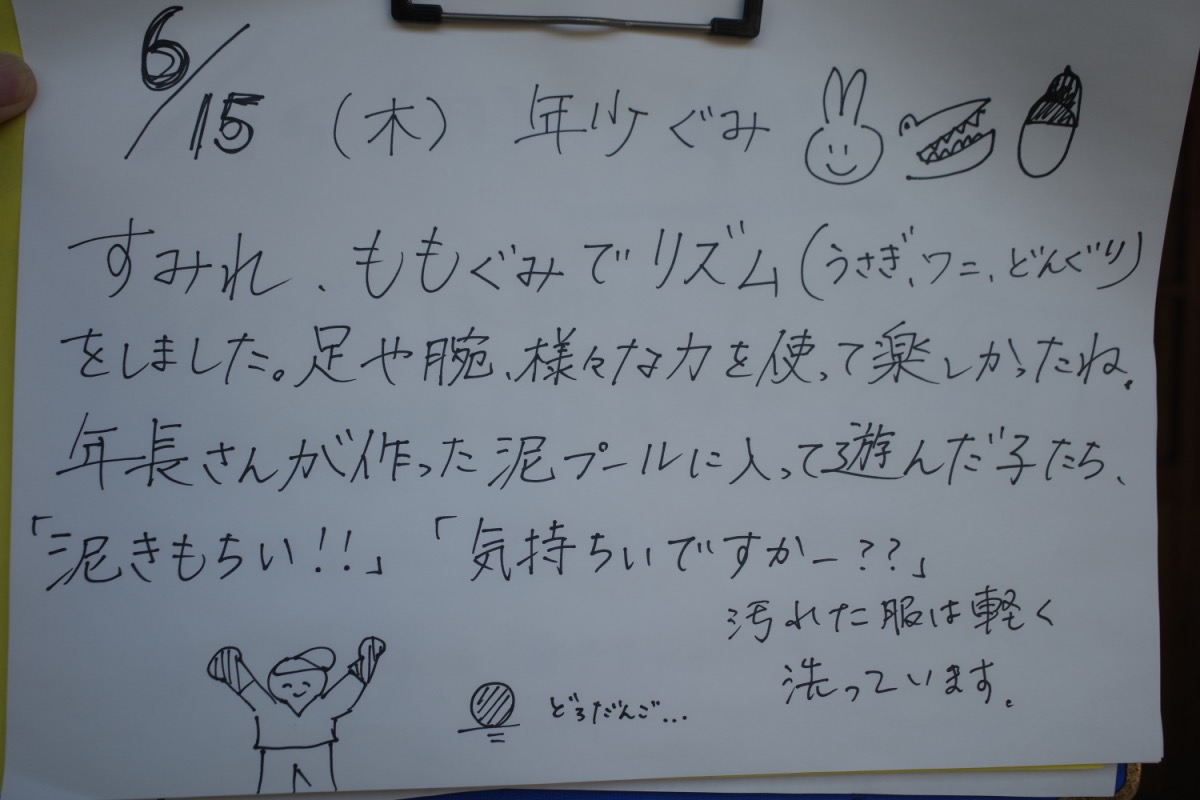 6/15 (木) 年少ぐみ
すみれ、ももぐみでリズム(うさぎ、ワニ、どんぐり)
をしました。足や腕、様々な力を使って楽しかったね。
年長さんが作った泥プールに入って遊んだ子たち、
「泥きもちい!!」 「気持ちいですかー??」
汚れた服は軽く
洗っています。
どろだんご...